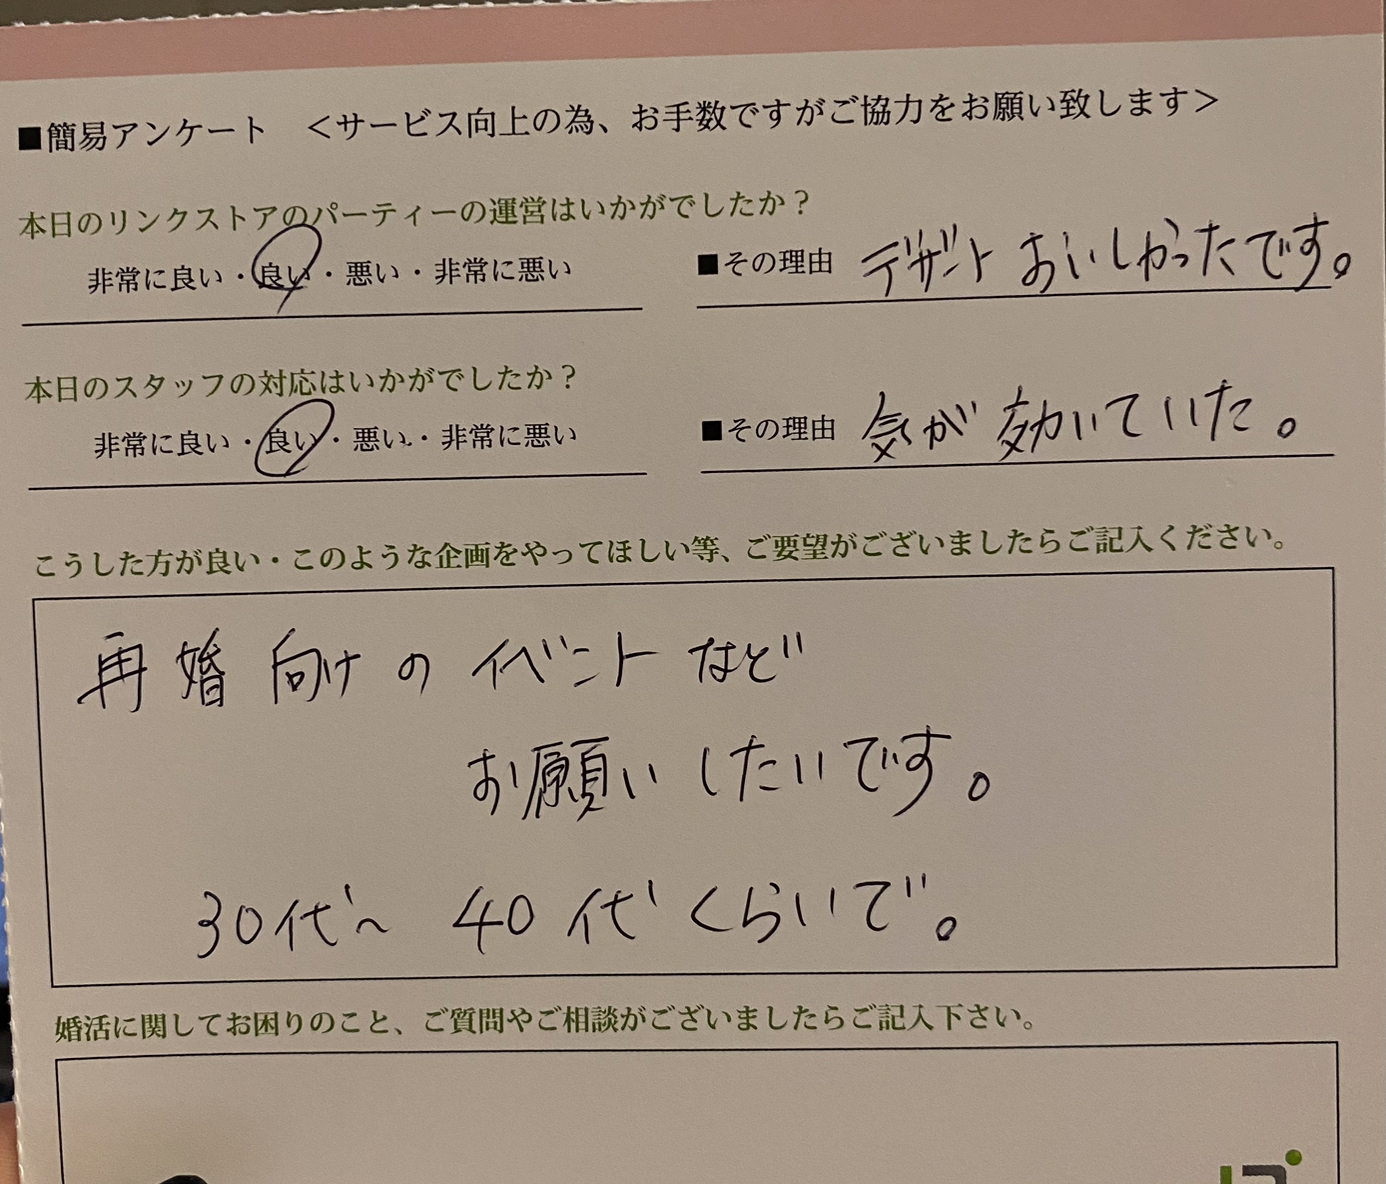 ■簡易アンケート ＜サービス向上の為、お手数ですがご協力をお願い致します＞
本日のリンクストアのパーティーの運営はいかがでしたか？
非常に良い・良い・悪い・非常に悪い ■その理由 デザートおいしかったです。
本日のスタッフの対応はいかがでしたか？
非常に良い・良い・悪い・非常に悪い ■その理由 気が効いていた。
こうした方が良い・このような企画をやってほしい等、ご要望がございましたらご記入ください。
再婚向けのイベントなど
お願いしたいです。
30代〜40代くらいで。
婚活に関してお困りのこと、ご質問やご相談がございましたらご記入下さい。